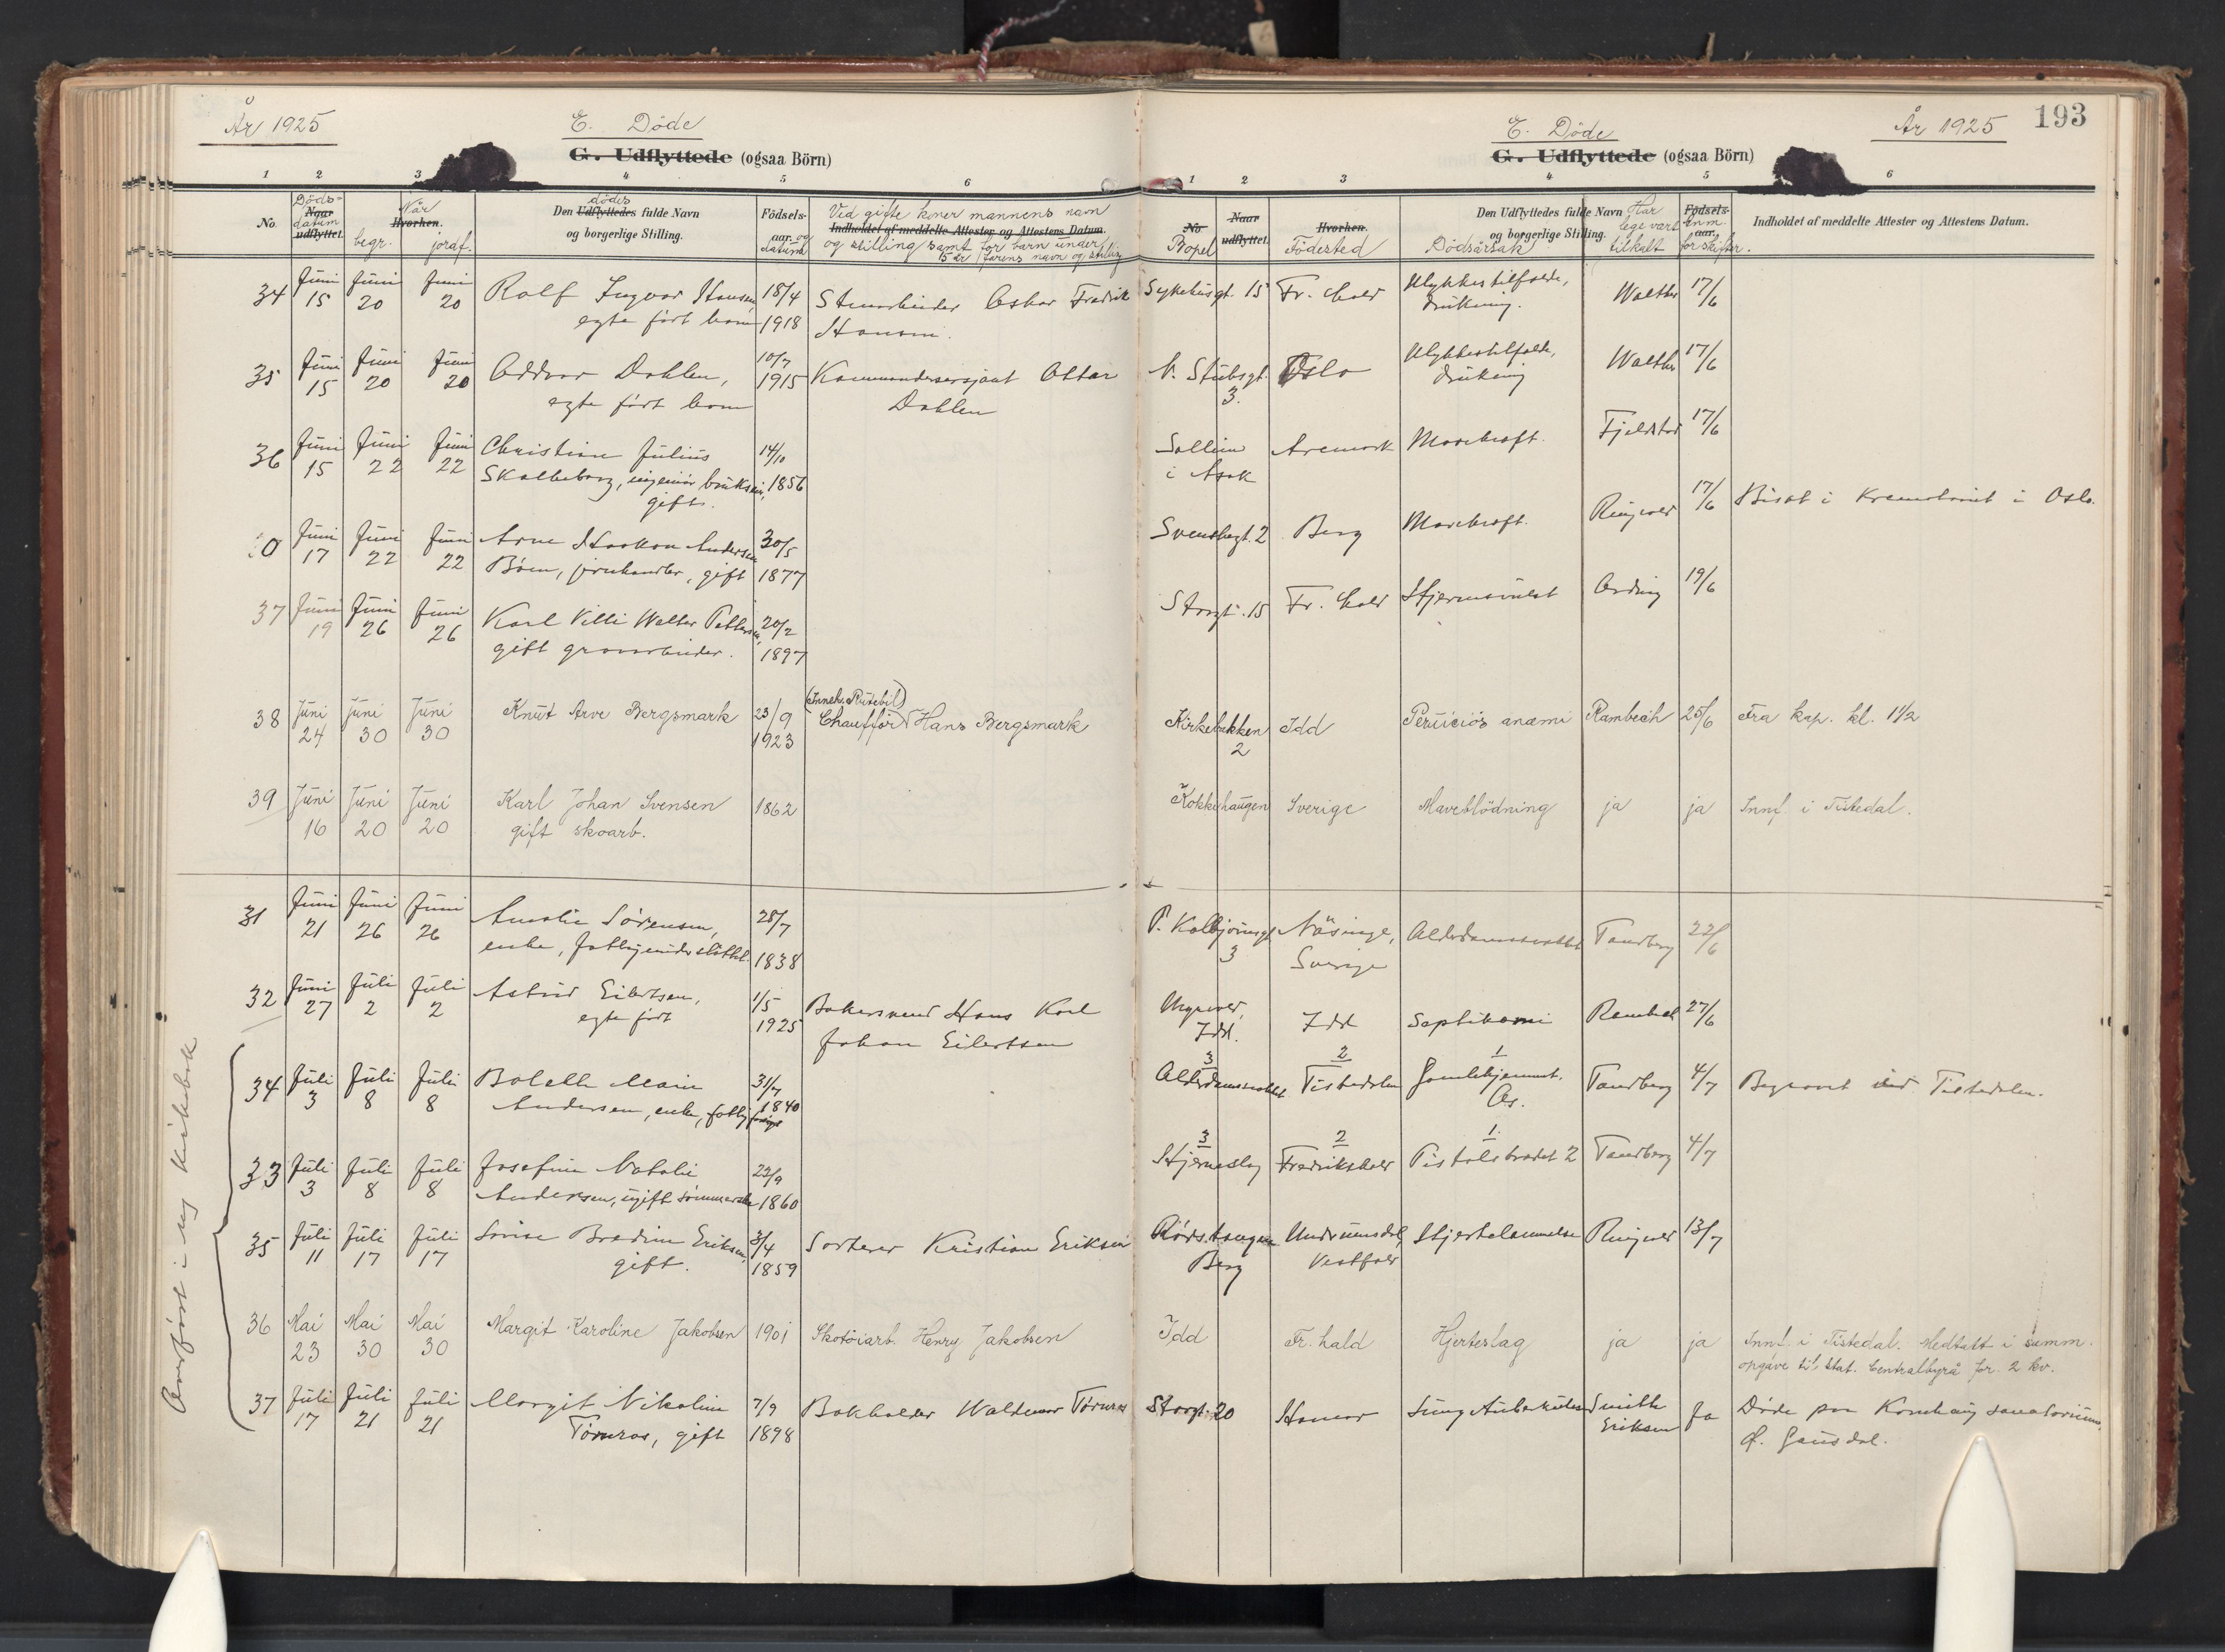 År 1925
E. Döde
G. Udflyttede (ogsaa Börn)
1 2 3 4 5 6
No.
Döds-
datum
Naar
udflyttet.
Når
Hvorhen.
begr. jordf.
dödes
Den Udflyttedes fulde Navn
og borgerlige Stilling.
Födsels-
aar. og
datum
Ved gifte koner mannens navn
Indholdet af meddelte Attester og Attestens Datum.
og stilling samt for barn under
15 år farens navn og stilling
34 Juni 15 Juni 20 Juni 20 Rolf Ingvar Hansen, 18/4
egte født barn 1918
Stenarbeider Oskar Fredrik
Hansen.
35 Juni 15 Juni 20 Juni 20 Oddvar Dahlen, 10/7
egte født barn 1915
Kommandersersjant Ottar
Dahlen
36 Juni 15 Juni 22 Juni 22 Christian Julius 14/10
Skolleborg, ingeniør, 1856
gift.
0 Juni 17 Juni 22 Juni 22 Arne Haakon Andersen 30/5
Böen, jernhandler, gift 1877
37 Juni 19 Juni 26 Juni 26 Karl Villi Walter Pettersen, 20/2
gift gravarbeider. 1897
38 Juni 24 Juni 30 Juni 30 Knut Arve Bergsmark 23/9
1923
(Inneh. Rutebil)
Chauffør Hans Bergsmark
39 Juni 16 Juni 20 Juni 20 Karl Johan Svensen 1862
gift skoarb.
31 Juni 21 Juni 26 Juni 26 Amalie Sørensen, 28/7
enke, fattigunderstöttet. 1838
32 Juni 27 Juli 2 Juli 2 Astrid Eilertsen, 1/5
egte født 1925
Bakersvend Hans Karl
Johan Eilertsen
Overført i ny kirkebok
34 Juli 3 Juli 8 Juli 8 Bolette Marie 31/7
Andersen, enke, 1840
33 Juli 3 Juli 8 Juli 8 Josefine Natalie 22/9
Andersen, ugift sømmerske 1860
35 Juli 11 Juli 17 Juli 17 Lovise Bredine Eriksen, 3/4
gift. 1859
Sorterer Kristian Eriksen
36 Mai 23 Mai 30 Mai 30 Margit Karoline Jakobsen 1901
Skotöiarb. Henry Jakobsen
37 Juli 17 Juli 21 Juli 21 Margit Nikoline 7/9
Törnros, gift 1898
Bokholder Waldemar Törnros
193
År 1925
E. Döde
G. Udflyttede (ogsaa Börn)
1 2 3 4 5 6
No
Bopel
Naar
udflyttet.
Hvorhen.
Födested
Den Udflyttedes fulde Navn
og borgerlige Stilling.
Dödsårsak
Har
lege vært
tilkalt
Födsels-
aar.
Anm.
for skifter.
Indholdet af meddelte Attester og Attestens Datum.
Sykehusgt. 15 Fr. hald Ulykkestilfælde,
drukning. Walther 17/6
V. Stubsgt. 3. Oslo Ulykkestilfælde,
drukning Walther 17/6
Sollien
i Asak Aremark Mavekræft. Fjeldstad 17/6
Svenskegt. 2 Berg Mavekræft. Ringvold 17/6 Bisat i Krematoriet i Oslo.
Storgt. 15 Fr. hald Hjernesvulst Ording 19/6
Kirkebakken
2 Idd Perniciøs anæmi Rambech 25/6 Fra kap. kl. 1 1/2
Kokkehaugen Sverige Maveblödning ja ja Innf. i Tistedal.
P. Kolbjörnsgt.
3 Näsinge,
Sverige Alderdomssvakhet Tandberg 22/6
Idd. Idd Septikæmi Rambech 27/6
3 2 1
Alderdomssvakhet Tistedalen Gamlehjemmet.
Os. Tandberg 4/7 Begravet ved Tistedalen.
3 2 1.
Hjerneslag Fredrikshald Pistolstrædet 2 Tandberg 4/7
Berg Undrumsdal,
Vestfold Hjertelammelse Ringvold 13/7
Idd Fr. hald Hjerteslag ja ja Innf. i Tistedal. Medtatt i summ.
opgave til Stat. Centralbyrå for 2 kv.
Storgt. 20 Hamar Lungetuberkulose Smith
Eriksen Ja Döde paa Kornhaug sanatorium,
Ö. Gausdal.